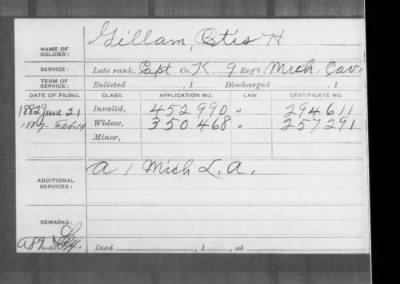 NAME OF SOLDIER: Gillam, Otis H
SERVICE: Late rank, Capt Co. K, 9 Reg't Mich. Cav.
TERM OF SERVICE: Enlisted , 1 Discharged , 1
DATE OF FILING. CLASS. APPLICATION NO. LAW. CERTIFICATE NO.
1882 June 21 Invalid, 452990 " 294611
Widow, 350468 " 257291
Minor,
ADDITIONAL SERVICES: A, 1 Mich L. A.
REMARKS:
Died , 1 , at